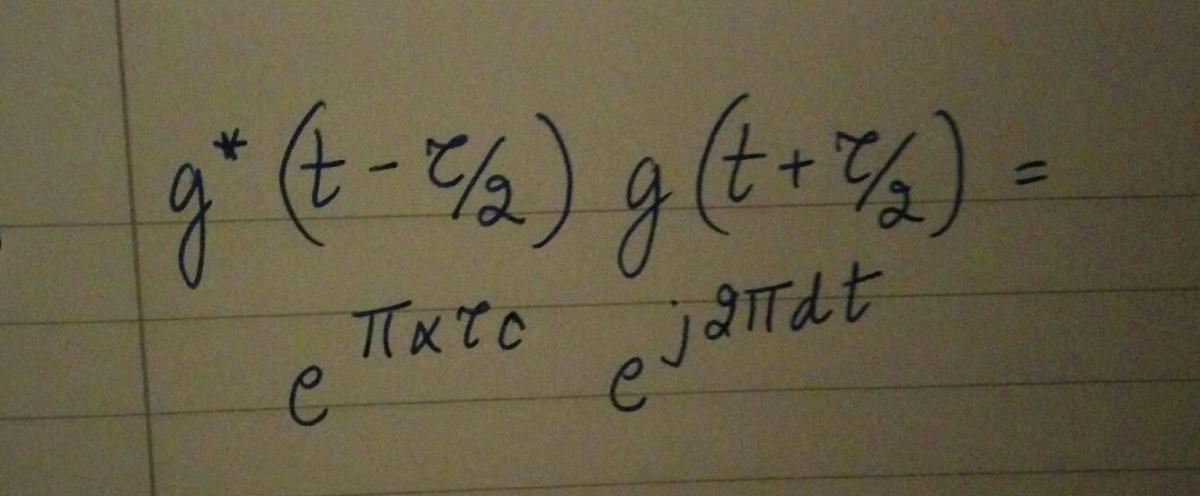 g* (t - τ/2) g (t + τ/2) =
e^{πατc} e^{j2πdt}